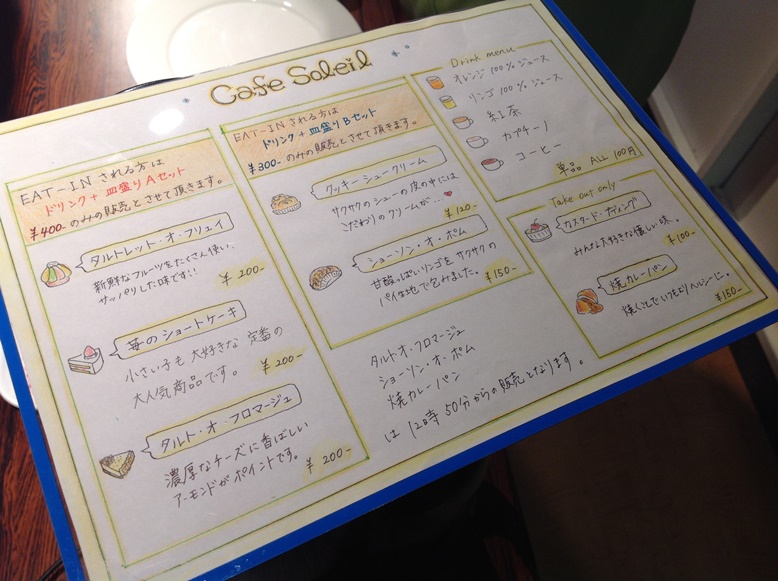 Cafe Soleil
EAT-IN される方は
ドリンク + 皿盛りAセット
¥400-のみの販売とさせて頂きます。
タルトレット・オ・フリュイ
新鮮なフルーツをたくさん使い、
サッパリした味です!!
¥200-
苺のショートケーキ
小さい子も大好きな定番の
大人気商品です。
¥200-
タルト・オ・フロマージュ
濃厚なチーズに香ばしい
アーモンドがポイントです。
¥200-
EAT-IN される方は
ドリンク + 皿盛りBセット
¥300-のみの販売とさせて頂きます。
クッキーシュークリーム
サクサクのシューの皮の中には
こだわりのクリームが…♥
¥120-
ショーソン・オ・ポム
甘酸っぱいリンゴをサクサクの
パイ生地で包みました。
¥150-
タルト・オ・フロマージュ
ショーソン・オ・ポム
焼カレーパン
は 12時50分からの販売となります。
Drink menu
オレンジ100%ジュース
リンゴ100%ジュース
紅茶
カプチーノ
コーヒー
単品 ALL 100円
Take out only
カスタードプディング
みんな大好きな懐しい味。
¥100-
焼カレーパン
焼くことでいつもよりヘルシーに。
¥150-